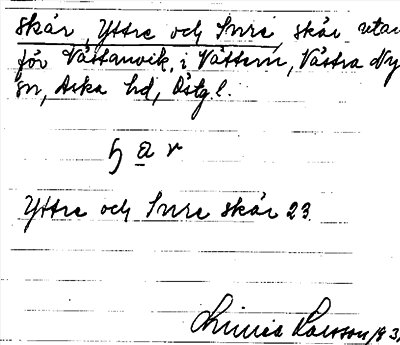 skär, Yttre och Inre, skär utan
för Västanvik, i Vättern, Västra Ny
sn, Aska hd, Östg.l.
Yttre och Inre skär 23.
Linnéa Larsson, 193